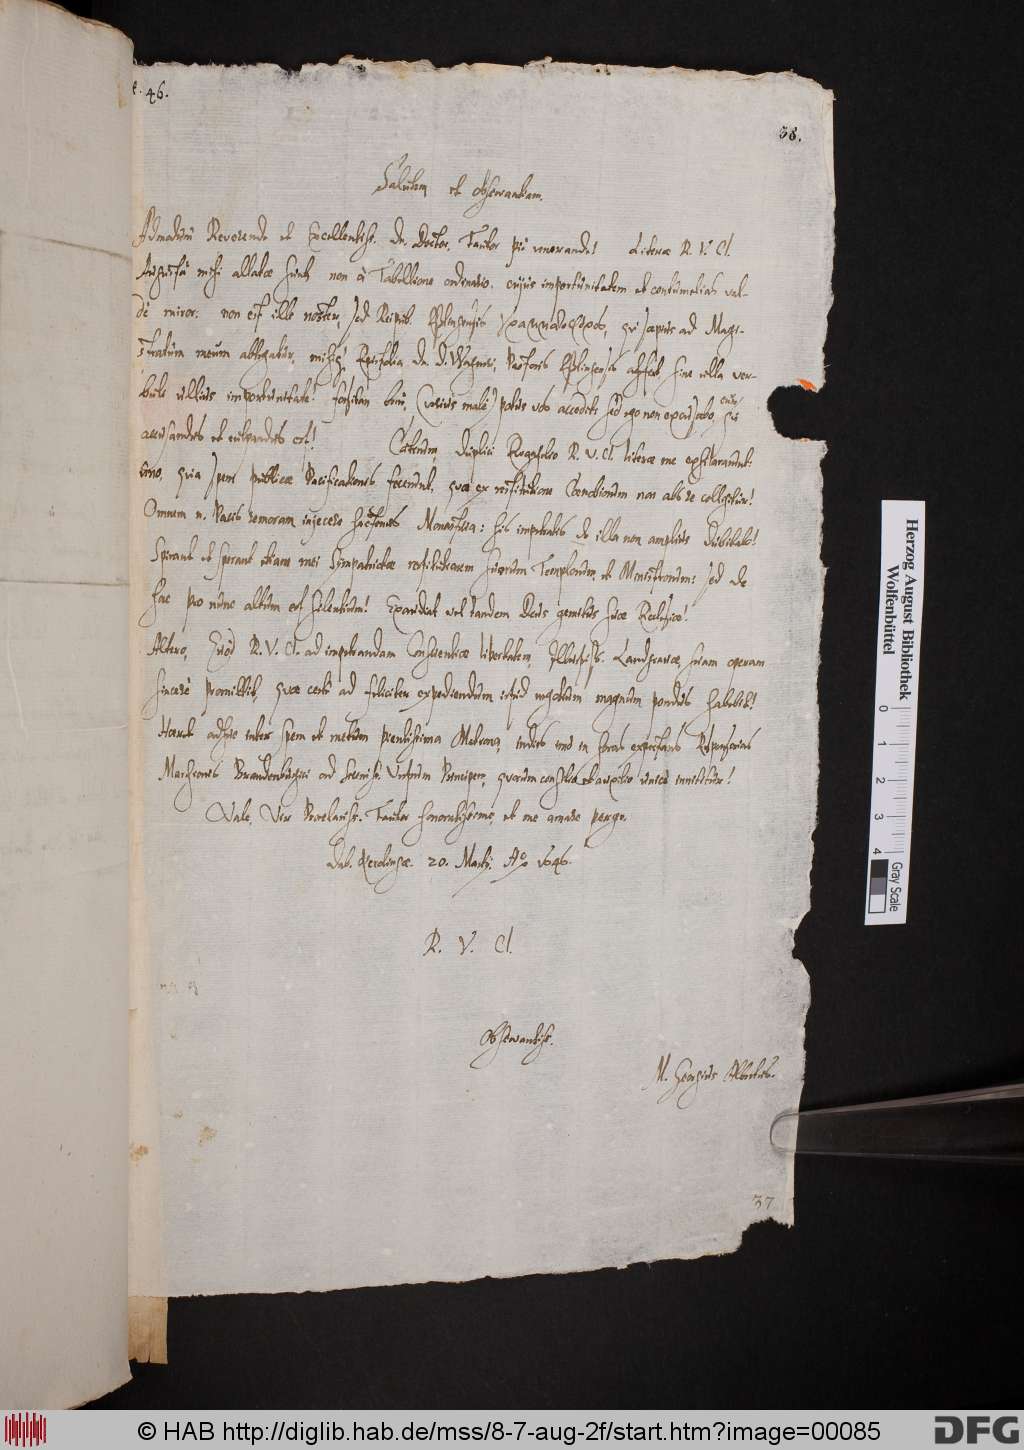 46.
38.
Salutem et observantiam.
Admodum Reverende et Excellentiss. Dn. Doctor, Fautor piè venerande! Literæ R. V. Cl.
Augustâ mihi allatæ sunt non à Tabellione ordinario, cujus importunitatem et contumelias val-
dè miror: non est ille noster, sed Reipub. Eslingensis γραμματοφόρος, qui sæpius ad Magi-
stratum meum ablegatur, mihiq; Epistolia Dn. D. Wagneri, Pastoris Eslingensis affert sine ulla ver-
bulis ullius importunitate! forsitan benè, (veriùs malè) potus vos accedit, sed ego non excusabo, qui
accusandus et culpandus est! Cæterum, duplici R. V. Cl. literæ me exhilararunt:
uno, quia spem publicæ Pacificationis fecerunt, quæ ex restitutione Cœnobiorum non abs re colligitur!
Omnem n. Pacis remoram injecere hactenus Monasteria: his impetratis de illa non amplius dubitabit!
Sperant et sperant etiam mei Sympatriotæ restitutionem suorum Templorum, et Ministrorum: sed de
hac pro nunc altum est silentium! Exaudiat vel tandem Deus gemitus suæ Ecclesiæ!
Altero, Quòd R. V. Cl. ad impetrandam Conscientiæ libertatem, Illustriss. Landgraviæ, suam operam
sincerè promittit, quæ certè ad feliciter expediendum istud negotium magnum pondus habebit!
Hæret adhuc inter spem et metum Matrona, indies in horas expectans Responsorias
Marchionis Brandenburgici ad Sereniss. Principem, quorum consilio et auxilio unicè innititur!
Vale, Vir Præclariss. Fautor honoratissime, et me amare perge.
Dab. 20. Martij. Aº. 1646.
R. V. Cl.
Observantiss.
M. Georgius Albertus.
37
Herzog August Bibliothek
Wolfenbüttel
0 1 2 3 4
Gray Scale
© HAB http://diglib.hab.de/mss/8-7-aug-2f/start.htm?image=00085
DFG